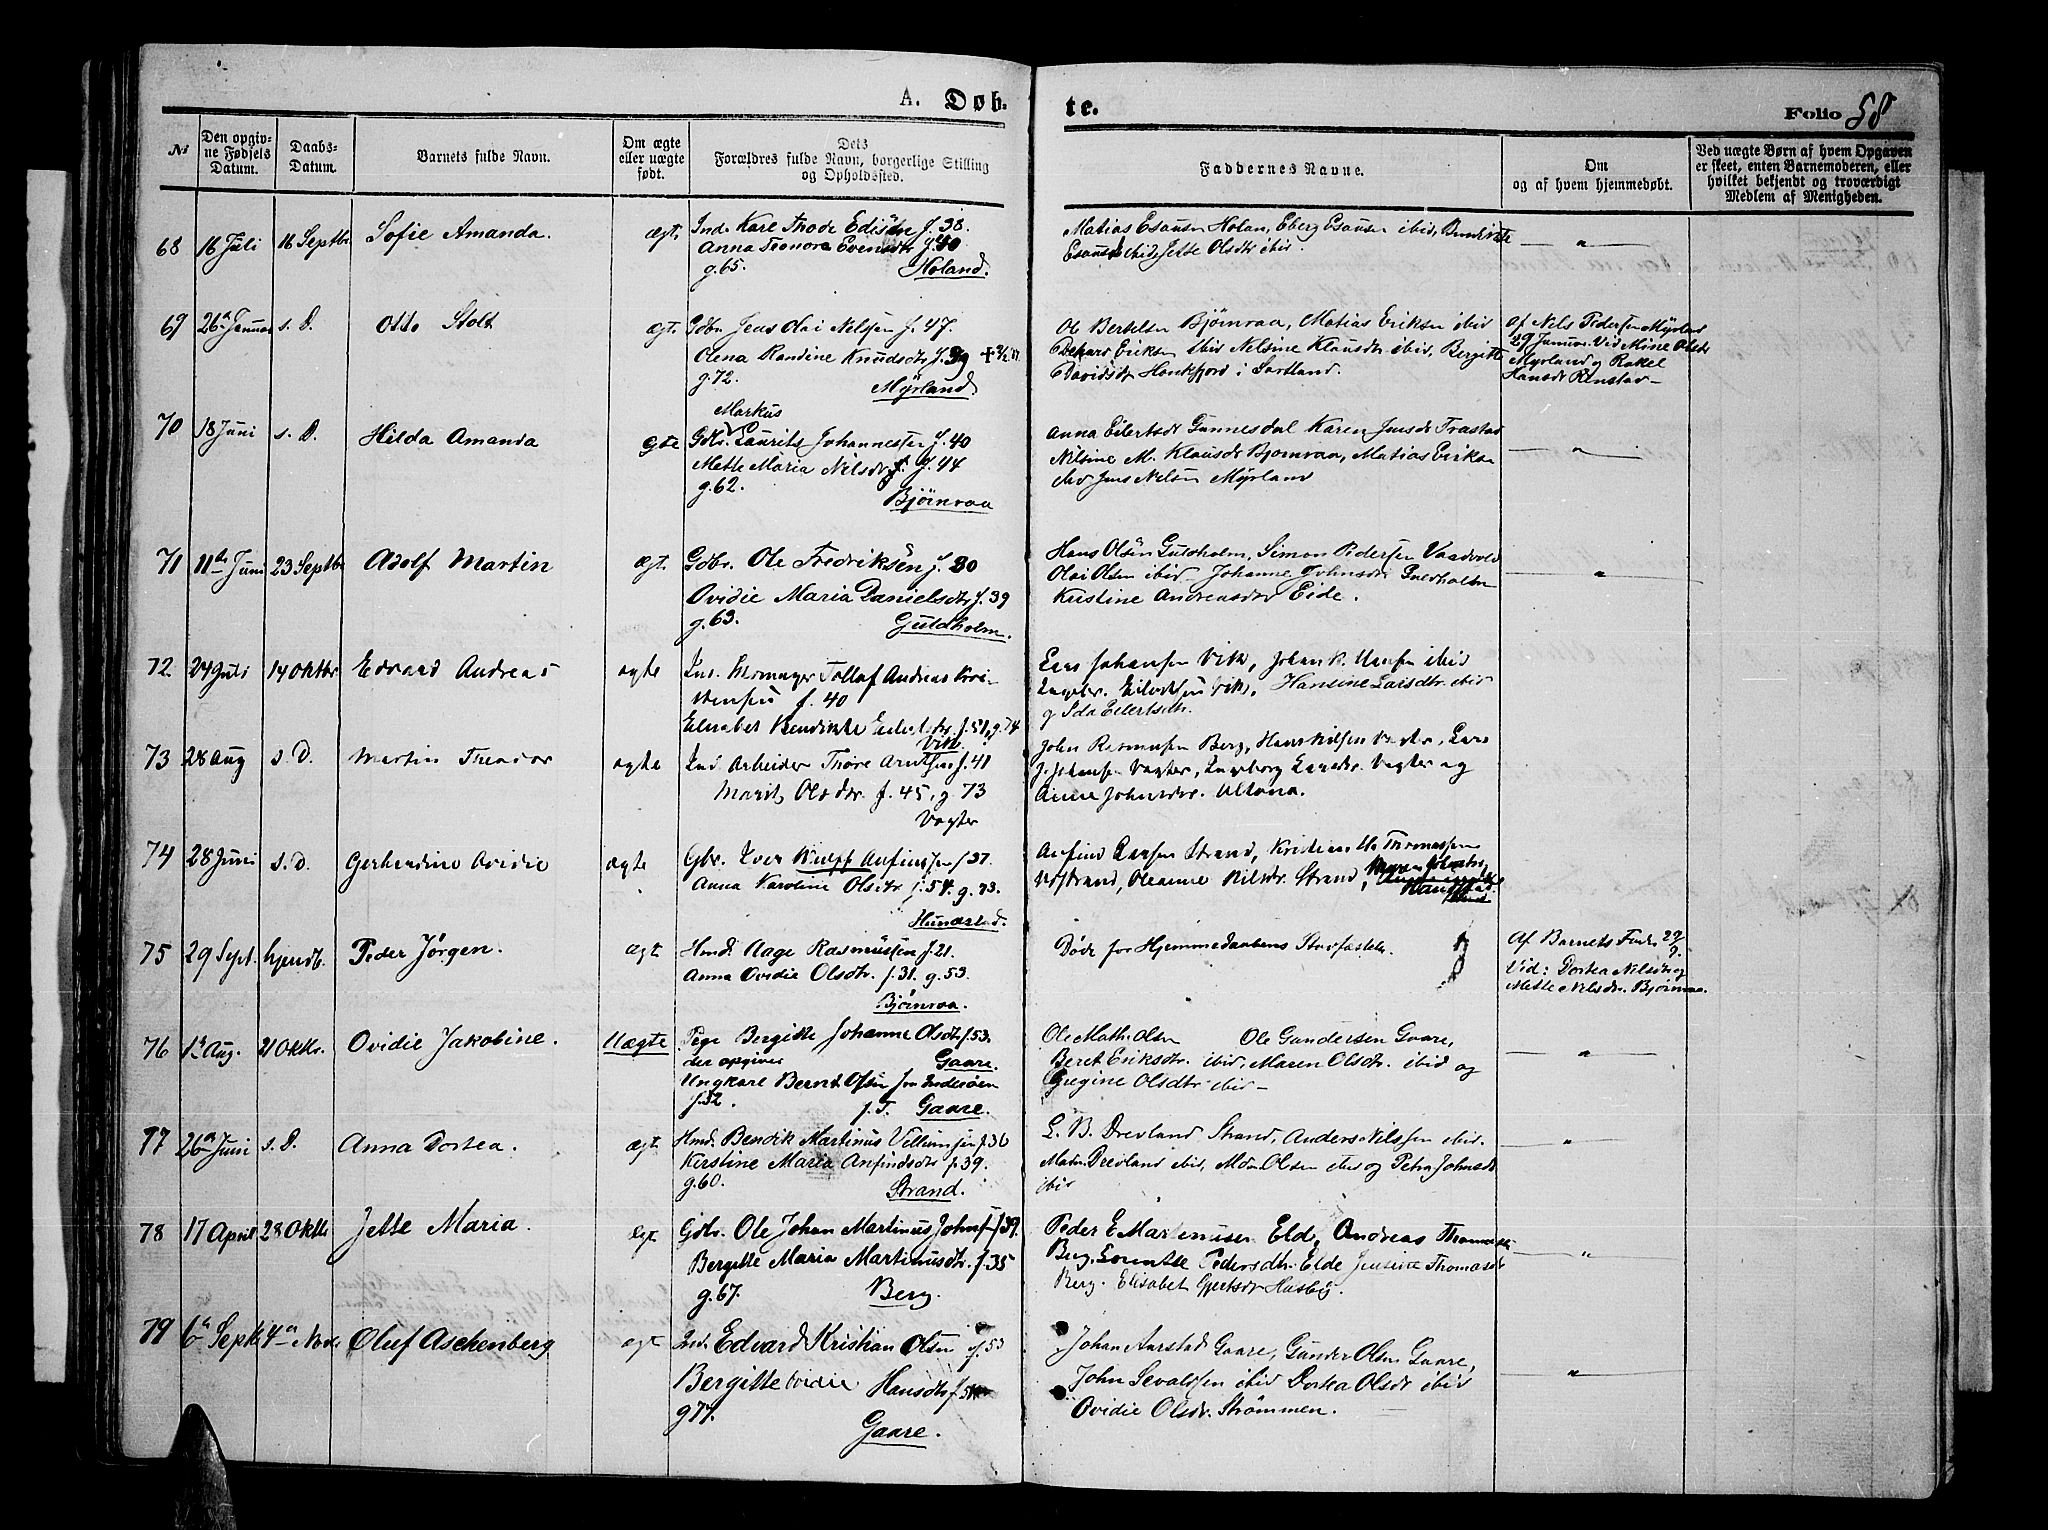 A. Døb- te.
Folio 58
No
Den opgiv-
ne Fødsels
Datum.
Daabs-
Datum.
Barnets fulde Navn.
Om ægte
eller uægte
født.
Dets
Forældres fulde Navn, borgerlige Stilling
og Opholdssted.
Faddernes Navne.
Om
og af hvem hjemmedøbt.
Ved uægte Børn af hvem Opgaven
er skeet, enten Barnemoderen, eller
hvilket bekjendt og troværdigt
Medlem af Menigheden.
68 16 Juli 16 Septbr. Sofie Amanda. Ægt. Ind. Karl Thode Edisen f. 38.
Anna Leonora Evensdtr f. 40
g. 65. Holand.
Matias Esausen Holan, Eberg Esausen ibid,
Esausd ibid, Jette Olsdtr ibid. — " —
69 26 Januar s. D. Otto Stolt Ægt. Gdbr Jens Olai Nelsen f. 47.
Olena Randine Knudsdtr f. 39
g. 72. Myrland
Ole Bertelsen Bjørnraa, Matias Eriksen ibid
Eriksen ibid Nelsine Klausdtr ibid, Bergitte
Davidsdtr Honkfjord i Sortland.
Af Nels Pedersen Myrland
29 Januar. Vid Mine Olsdtr
Myrland og Rakel
Hansdtr Renstad —
70 18 Juni s. D. Hilda Amanda Ægte Markus
Gdbr. Laurits Johannessen f. 40
Mette Maria Nilsdtr f. 44
g. 62.
Bjørnraa
Anna Eilertsdtr Gunnesdal Karen Jensdtr Frastad
Nilsine M. Klausdtr Bjørnraa, Matias Eriksen
ibid Jens Nelsen Myrland — " —
71 11te Juni 23 Septbr Adolf Martin Ægt. Gdbr. Ole Fredriksen f. 30
Ovidie Maria Danielsdtr f. 39
g. 63. Guldholm.
Hans Olsen Guldholm, Simon Pedersen Vaadvold
Olai Olsen ibid. Johanne Johnsdtr Guldholm
Kristine Andreasdtr Eide. — " —
72 24 Juli 14 Oktbr. Edvard Andreas ægte Ind. Tollaf Andreas Kri-
stensen f. 40
Elisabet Bendikte f. 51, g. 74
Vik.
Lars Johansen Vik, Johan K. Hansen ibid
Eilertsen Vik, Hansine Larsdtr. ibid
og Ida Eilertsdtr.
73 28 Aug s. D. Martin Theodor ægte Ind Arbeider Thore Arntsen f. 41
Marit Olsdtr. f. 45, g. 73
Vogter
John Rasmusen Berg, Hans Nilsen Vogter, Lars
J. Johansen Vogter, Ingeborg Larsdtr. Vogter og
Anne Johnsdtr. Altona.
74 28 Juni s. D. Gerhardine Ovidie ægte Gbr. Iver Wulff Anfinsen f 37.
Anna Karoline Olsdtr f. 54. g. 73.
Hunerstad.
Anfind Larsen Strand, Kristian Thomassen
Strand, Oleanne Nilsdtr. Strand,
75 29 Sept. hjemdb. Peder Jørgen. Ægt Hmd. Aage Rasmussen f. 21.
Anna Ovidie Olsdtr. f. 31. g. 53.
Bjørnraa.
Døde før Hjemmedaabens Stadfestelse
Af Barnets Fader 29/9.
Vid: Dortea Nilsdtr og
Mette Nilsdtr. Bjørnraa.
76 1ste Aug. 21 Oktbr. Ovidie Jakobine. Uægte Pige Bergitte Johanne Olsdtr f 53.
der opgiver Gaare.
Ungkarl Bernt Olsen fra Inderøen
f. 52. f. T. Gaare.
Ole Math. Olsen Ole Gundersen Gaare,
Beret Eriksdtr. ibid, Maren Olsdtr. ibid og
Gregine Olsdtr ibid — — " —
77 26 Juni s. D. Anna Dortea. Ægt. Hmd. Bendik Martinus Villumsen f. 36
Kerstine Maria Anfindsdtr f. 39.
g. 60. Strand.
L. B. Drevland Strand, Anders Nilssen ibid.
Matn. Drevland ibid, Olsen ibid og Petra Johnsdtr
ibid "
78 17 April 28 Oktbr Jette Maria. Ægt Gdbr. Ole Johan Martinus Johnsen f 39.
Bergitte Maria Martinusdtr. f. 35
g. 67. Berg.
Peder E Martinusen Elde, Andreas Thomassen
Berg, Lorentse Pedersdtr. Elde Jensine Thomasdtr
Berg. Elisabet Gjertsdtr Husby. — " —
79 6te Septb 4de Novbr Oluf Aschenberg ægt Ind. Edvard Kristian Olsen f. 53
Bergitte Ovidie Hansdtr f.
g 77. Gaare.
Johan Aarstad Gaare, Gunder Olsen Gaare,
John Sevaldsen ibid Dortea Olsdtr ibid
Ovidie Olsdtr. Strømmen. "